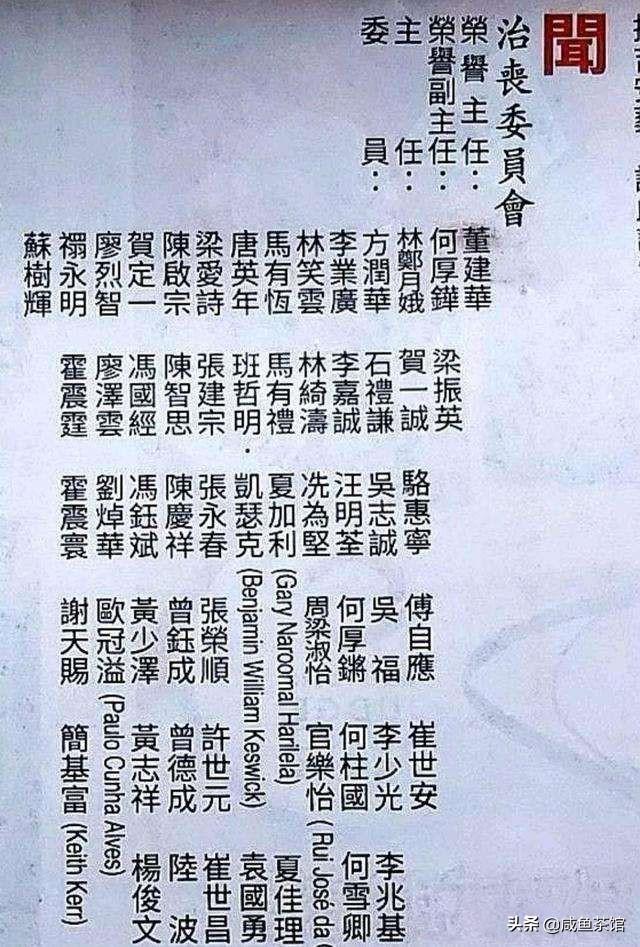 聞
治喪委員會
榮譽主任： 董建華
榮譽副主任： 何厚鏵 梁振英
主　任： 林鄭月娥 賀一誠 駱惠寧 傅自應 崔世安
委　員： 方潤華 石禮謙 吳志誠 吳　福 李少光 李兆基
李業廣 李嘉誠 汪明荃 何厚鏘 何柱國 何雪卿
林笑雲 林綺濤 冼為堅 周梁淑怡 官樂怡 (Rui José da
馬有恆 馬有禮 夏加利 (Gary Naroomal Harilela) 夏佳理
唐英年 班哲明．凱瑟克 (Benjamin William Keswick) 袁國勇
梁愛詩 張建宗 張永春 張榮順 許世元 崔世昌
陳啟宗 陳智思 陳慶祥 曾鈺成 曾德成 陸　波
賀定一 馮國經 馮鈺斌 黃少澤 黃志祥 楊俊文
廖烈智 廖澤雲 劉焯華 歐冠溢 (Paulo Cunha Alves)
禤永明 霍震霆 霍震寰 謝天賜 簡基富 (Keith Kerr)
蘇樹輝
头条 @咸鱼茶馆